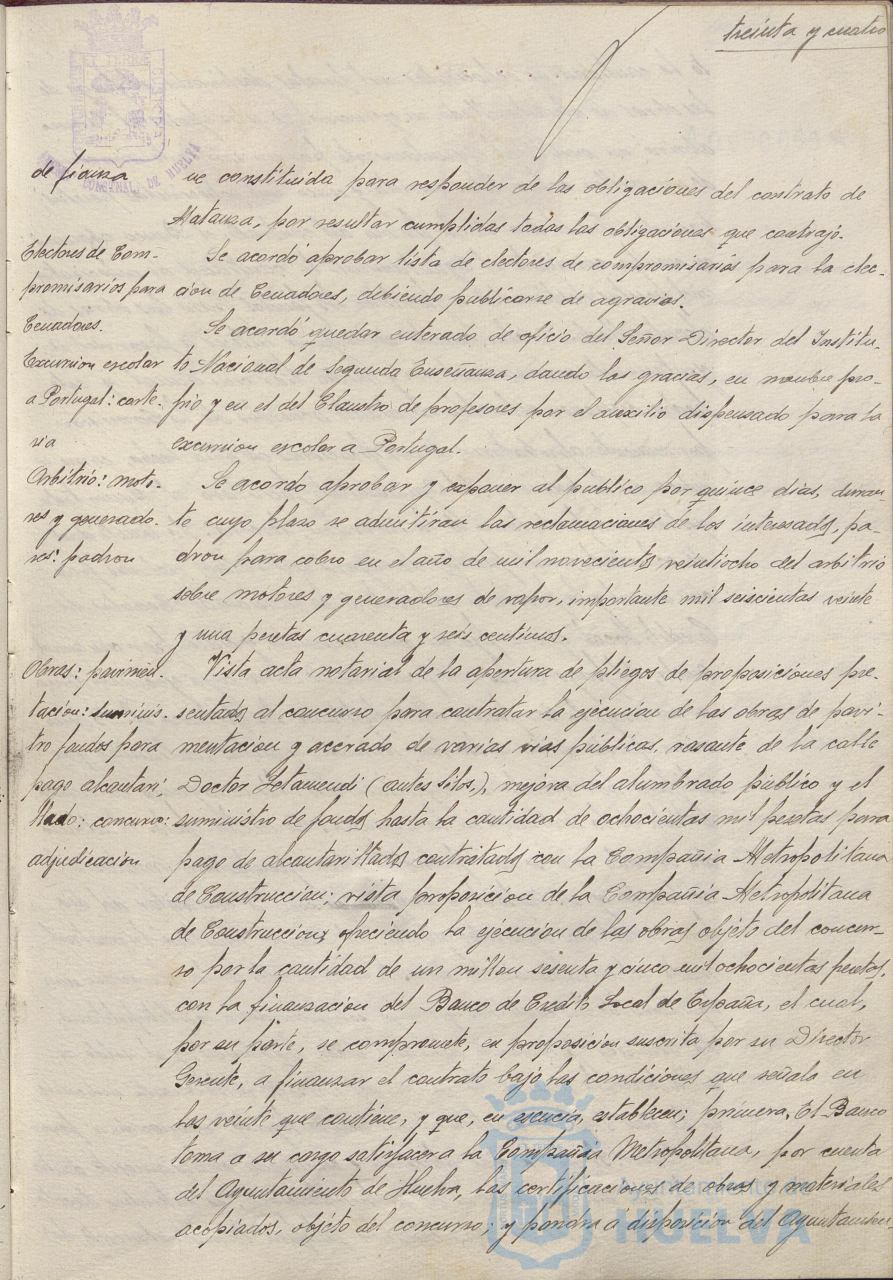 treinta y cuatro
de fianza
ue constituida para responder de las obligaciones del contrato de
Matanza, por resultar cumplidas todas las obligaciones que contrajo.
Electores de Com-
promisarios para
Senadores.
Se acordó aprobar lista de electores de compromisarios para la elec-
cion de Senadores, debiendo publicarse de agravios.
Excursion escolar
a Portugal: corte-
sia
Se acordó quedar enterado de oficio del Señor Director del Institu-
to Nacional de Segunda Enseñanza, dando las gracias, en nombre pro-
pio y en el del Claustro de profesores por el auxilio dispensado para la
excursion escolar a Portugal.
Arbitrio: moto-
res y generado-
res: padron
Se acordó aprobar y exponer al publico por quince dias, duran-
te cuyo plazo se admitiran las reclamaciones de los interesados, pa-
dron para cobro en el año de mil novecientos veintiocho del arbitrio
sobre motores y generadores de vapor, importante mil seiscientas veinte
y una pesetas cuarenta y seis centimos.
Obras: pavimen-
tacion: suminis-
tro fondos para
pago alcantari-
llado: concurso:
adjudicacion
Vista acta notarial de la apertura de pliegos de proposiciones pre-
sentados al concurso para contratar la ejecucion de las obras de pavi-
mentacion y acerado de varias vias públicas, rasante de la calle
Doctor Letamendi (antes Silos,), mejora del alumbrado publico y el
suministro de fondos hasta la cantidad de ochocientas mil pesetas para
pago de alcantarillados contratados con la Compañia Metropolitana
de Construccion; vista proposicion de la Compañia Metropolitana
de Construccion, ofreciendo la ejecucion de las obras objeto del concur-
so por la cantidad de un millon sesenta y cinco mil ochocientas pesetas,
con la finanzacion del Banco de Credito Local de España, el cual,
por su parte, se compromete, en proposicion suscrita por su Director
Gerente, a finanzar el contrato bajo las condiciones que señala en
las veinte que contiene, y que, en esencia, establecen; primera, El Banco
toma a su cargo satisfacer a la Compañia Metropolitana, por cuenta
del Ayuntamiento de Huelva, las certificaciones de obras y materiales
acopiados, objeto del concurso; y pondra a disposicion del Ayuntamien-
Ayuntamiento de
HUELVA